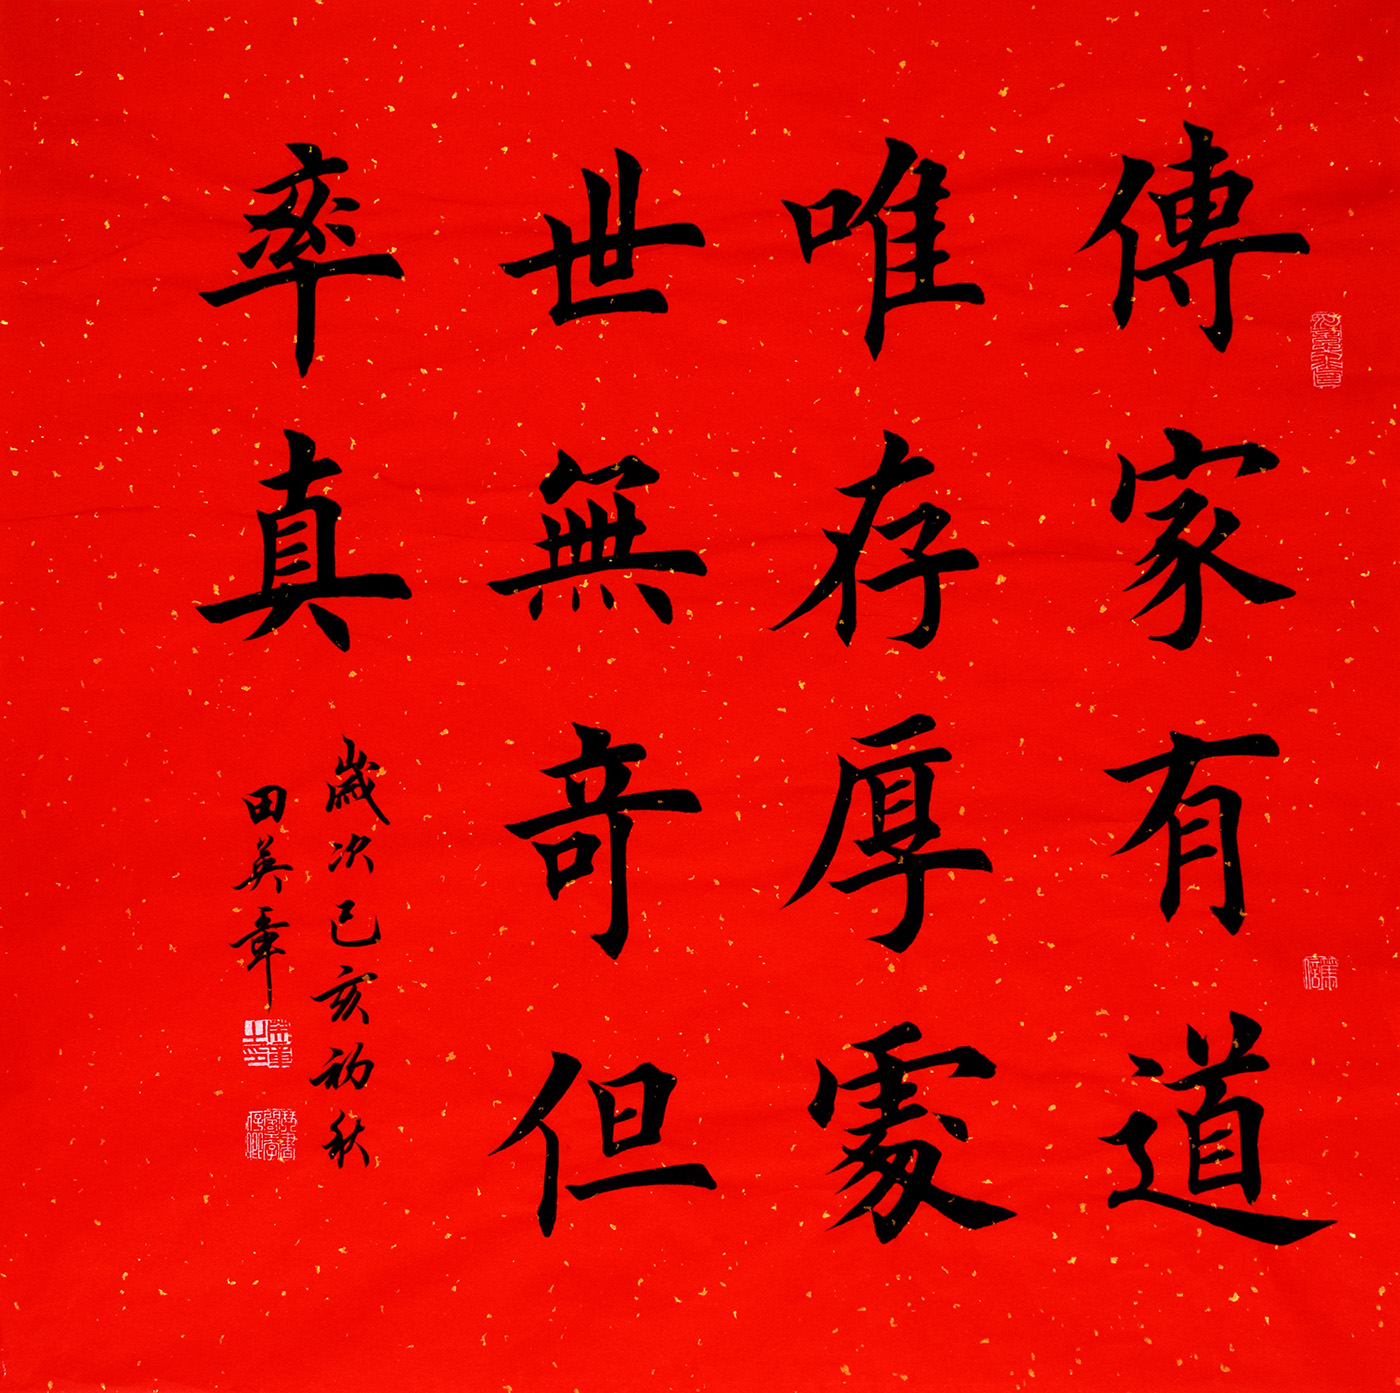 傳家有道
唯存厚處
世無奇但
率真
歲次己亥初秋
田英章